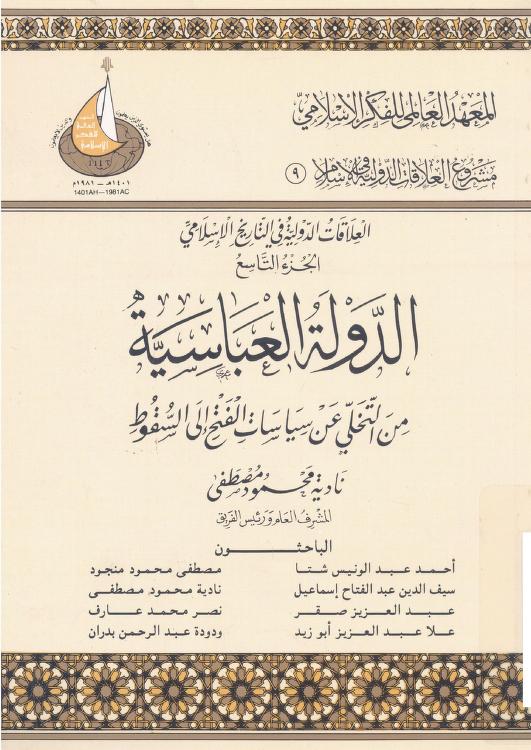 المعهد العالمي للفكر الإسلامي
مشروع العلاقات الدولية في الإسلام ٩
المعهد
العالمي
للفكر
الإسلامي
١٤٠١هـ – ١٩٨١م
1401AH – 1981AC
العلاقات الدولية في التاريخ الإسلامي
الجزء التاسع
الدولة العباسية
من التخلي عن سياسات الفتح إلى السقوط
نادية محمود مصطفى
المشرف العام ورئيس الفريق
الباحثون
أحمد عبد الونيس شتا مصطفى محمود منجود
سيف الدين عبد الفتاح إسماعيل نادية محمود مصطفى
عبد العزيز صقر نصر محمد عارف
علا عبد العزيز أبو زيد ودودة عبد الرحمن بدران